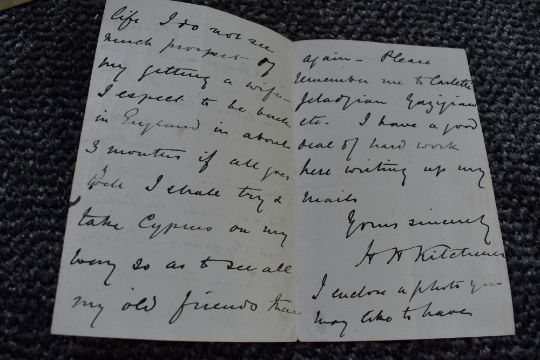 life I do not see
much prospect of
my getting a wife -
I expect to be back
in England in about
3 months if all goes
well I shall try &
take Cyprus on my
way so as to see all
my old friends there
again - Please
remember me to
etc. I have a good
deal of hard work
here writing up my
Yours sincerely
H H Kitchener
I enclose a photo you
may like to have